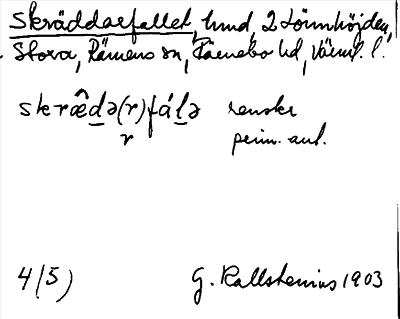 Skräddarefallet, hmd, 2 Lönnhöjden,
Stora, Rämens sn, Färnebo hd, Värml. l.
skræ̂də(r)fálə renskr
r perm. ant.
4/5) G. Kallstenius 1903